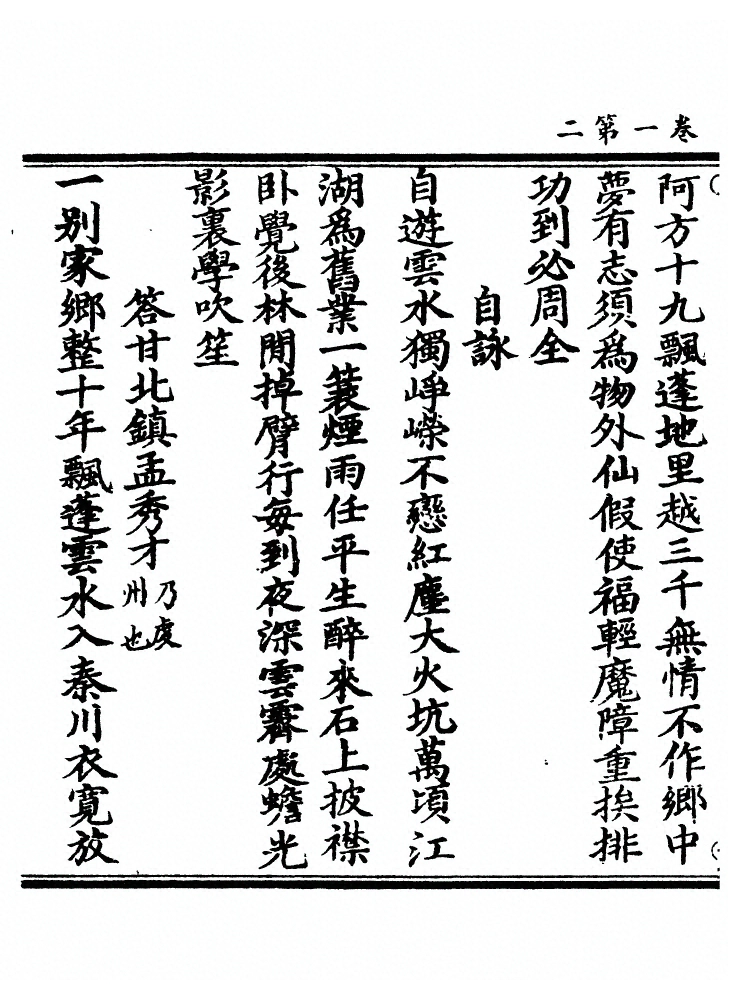 卷一第二
阿方十九飄蓬地里越三千無情不作鄉中
夢有志須爲物外仙假使福輕魔障重挨排
功到必周全
自詠
自遊雲水獨崢嶸不戀紅塵大火坑萬頃江
湖爲舊業一蓑煙雨任平生醉來石上披襟
卧覺後林間掉臂行每到夜深雲霽處蟾光
影裏學吹笙
答甘北鎮孟秀才乃虔州也
一別家鄉整十年飄蓬雲水入秦川衣寬放